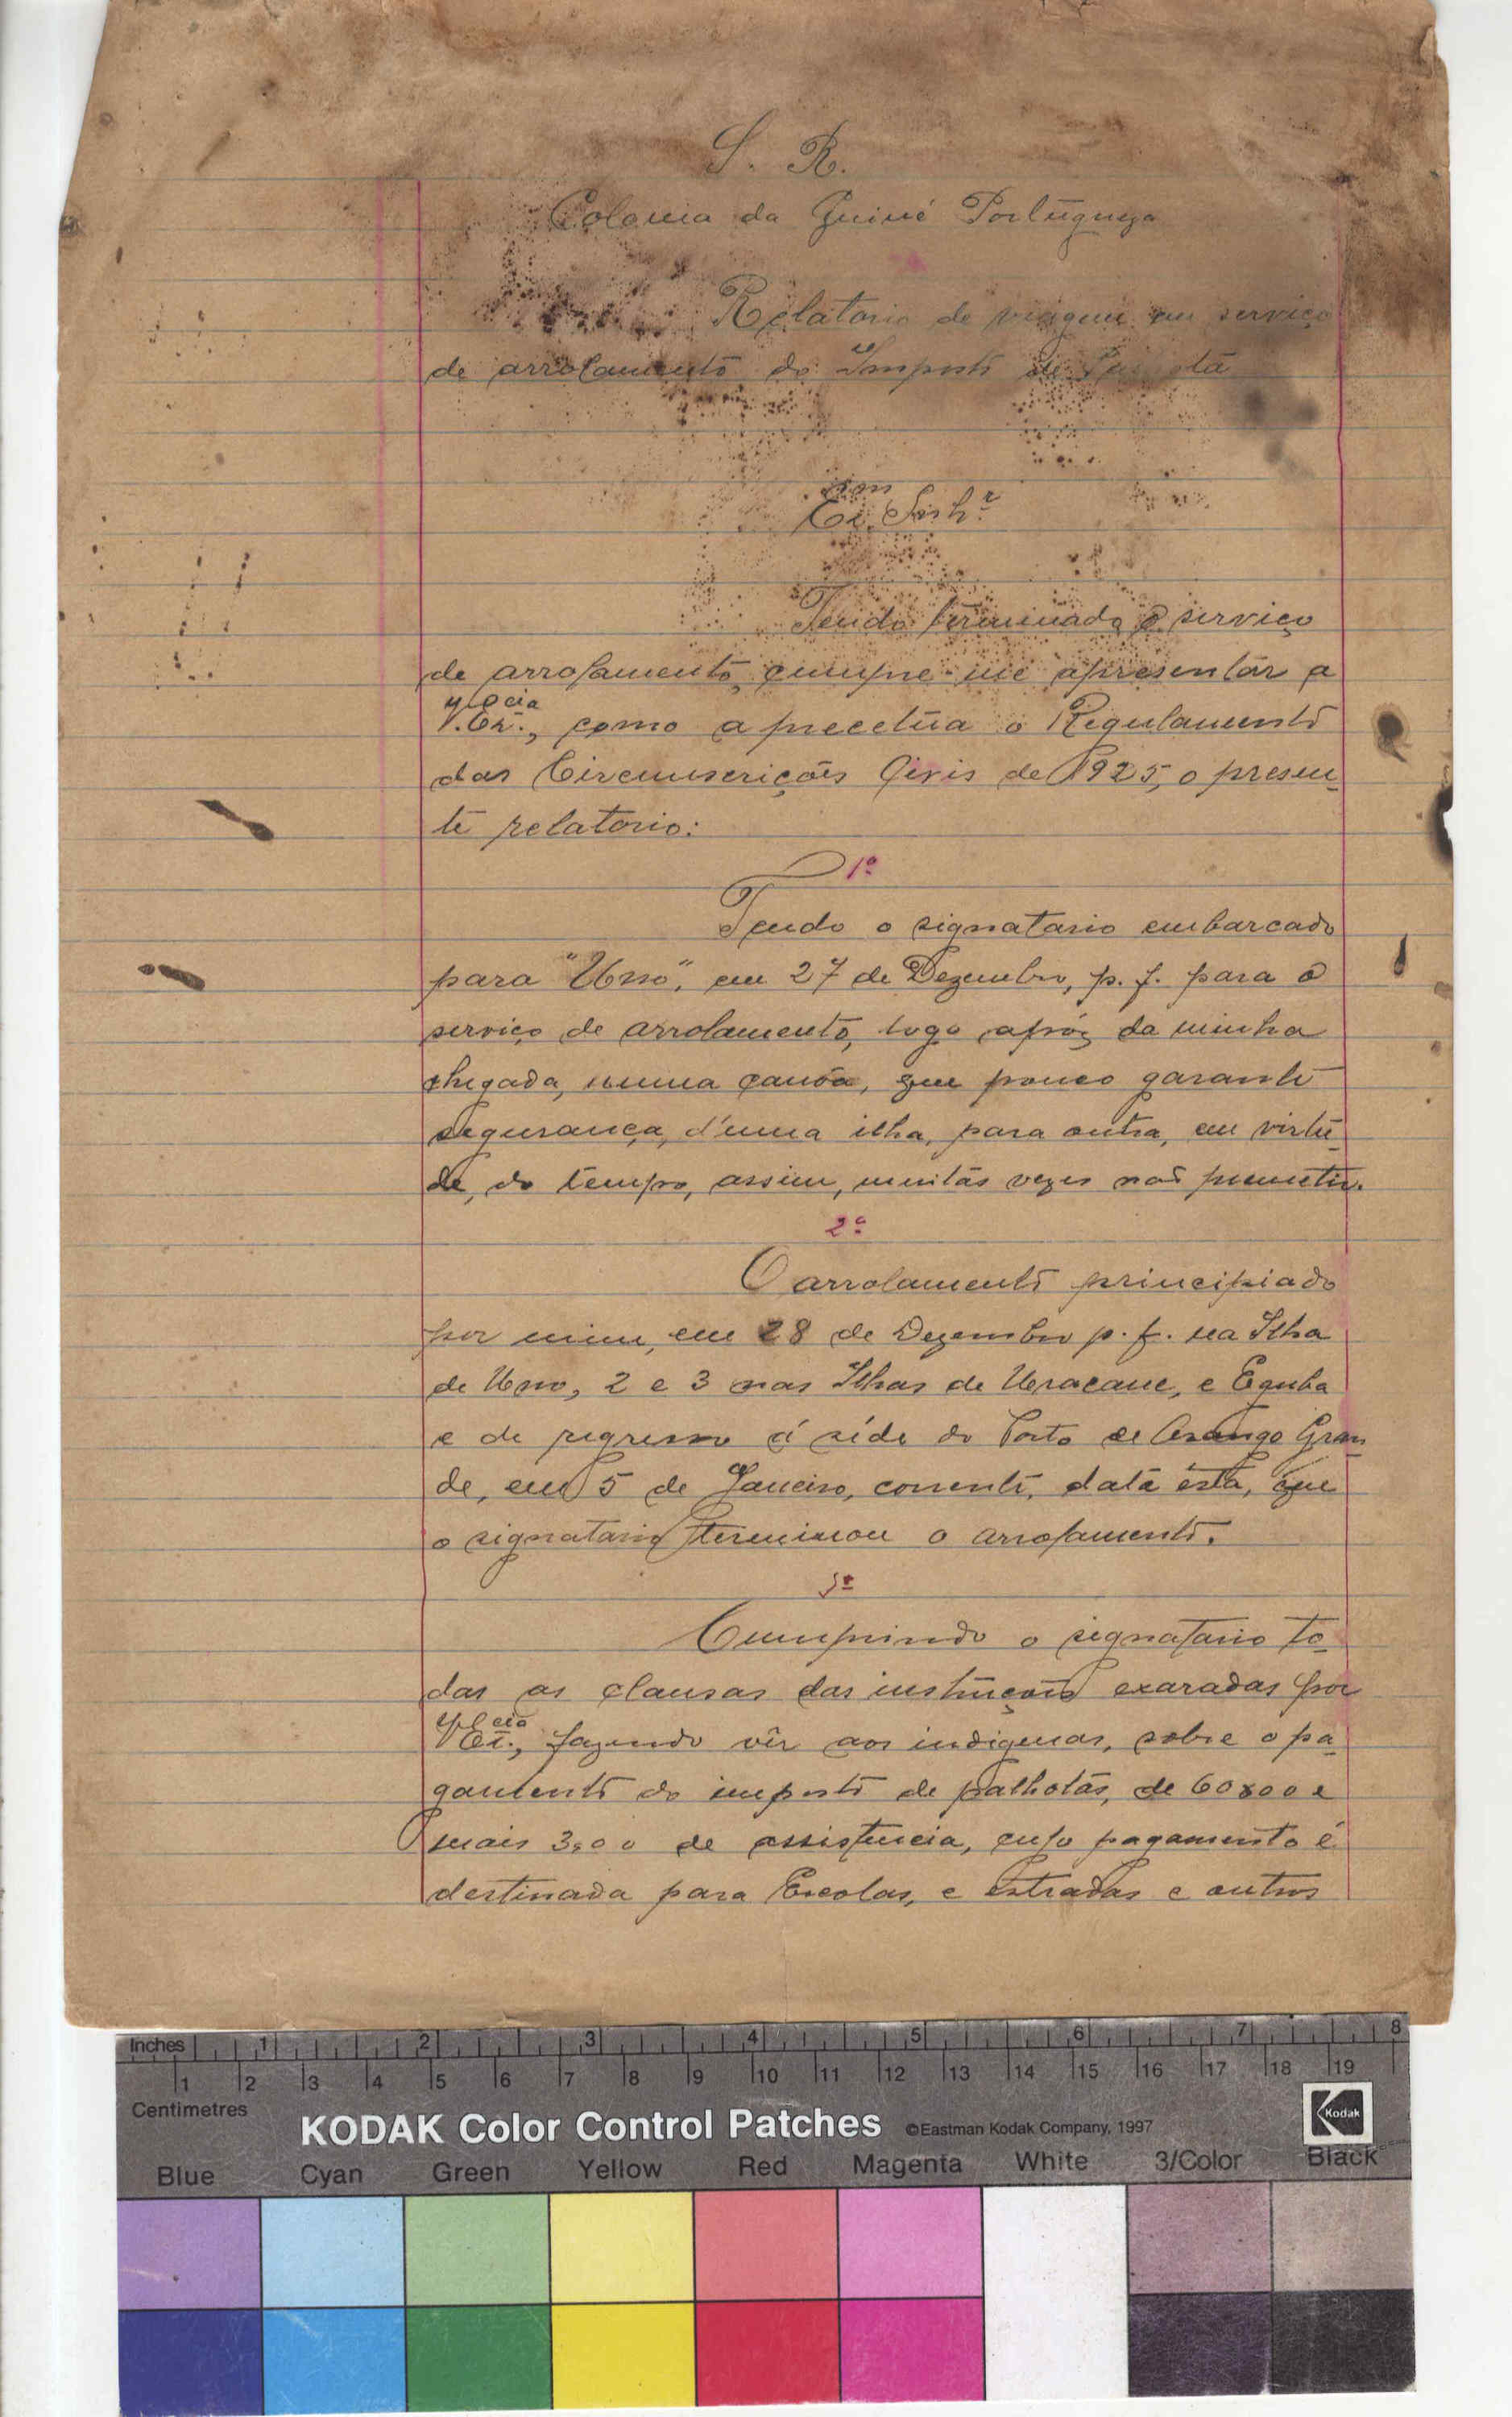 S. R.
Colonia da Guiné Portugueza
Relatorio de viagem em serviço
de arrolamento do Imposto de
Ex.mo Senhr.
Tendo terminado o serviço
de arrolamento, cumpre-me apresentar a
V. Ex.cia, como a precetúa o Regulamento
das Circumscrições Civis de 1925, o presen-
te relatorio:
1º
Tendo o signatario embarcado
para "Uno", em 27 de Dezembro, p. f. para o
serviço de arrolamento, logo após da minha
chegada, numa canôa, que pouco garante
segurança, d'uma ilha, para outra, em virtu-
de, do tempo, assim, muitas vezes não premetir.
2º
O arrolamento principiado
por mim, em 28 de Dezembro p. f. na Ilha
de Uno, 2 e 3 nas Ilhas de Uracane, e Eguba
e de regresso á séde do Posto de Orango Gran-
de, em 5 de Janeiro, corrente, data esta, que
o signatario terminou o arrolamento.
3º
Cumprindo o signatario to-
das as clausas das instruções exaradas por
V. Ex.cia, fazendo vêr aos indigenas, sobre o pa-
gamento do imposto de palhotas, de 60$00 e
mais 3,00 de assistencia, cujo pagamento é
destinada para Escolas, e estradas e outros
Inches 1 2 3 4 5 6 7 8
1 2 3 4 5 6 7 8 9 10 11 12 13 14 15 16 17 18 19
Centimetres
KODAK Color Control Patches ©Eastman Kodak Company, 1997
Kodak
Blue Cyan Green Yellow Red Magenta White 3/Color Black